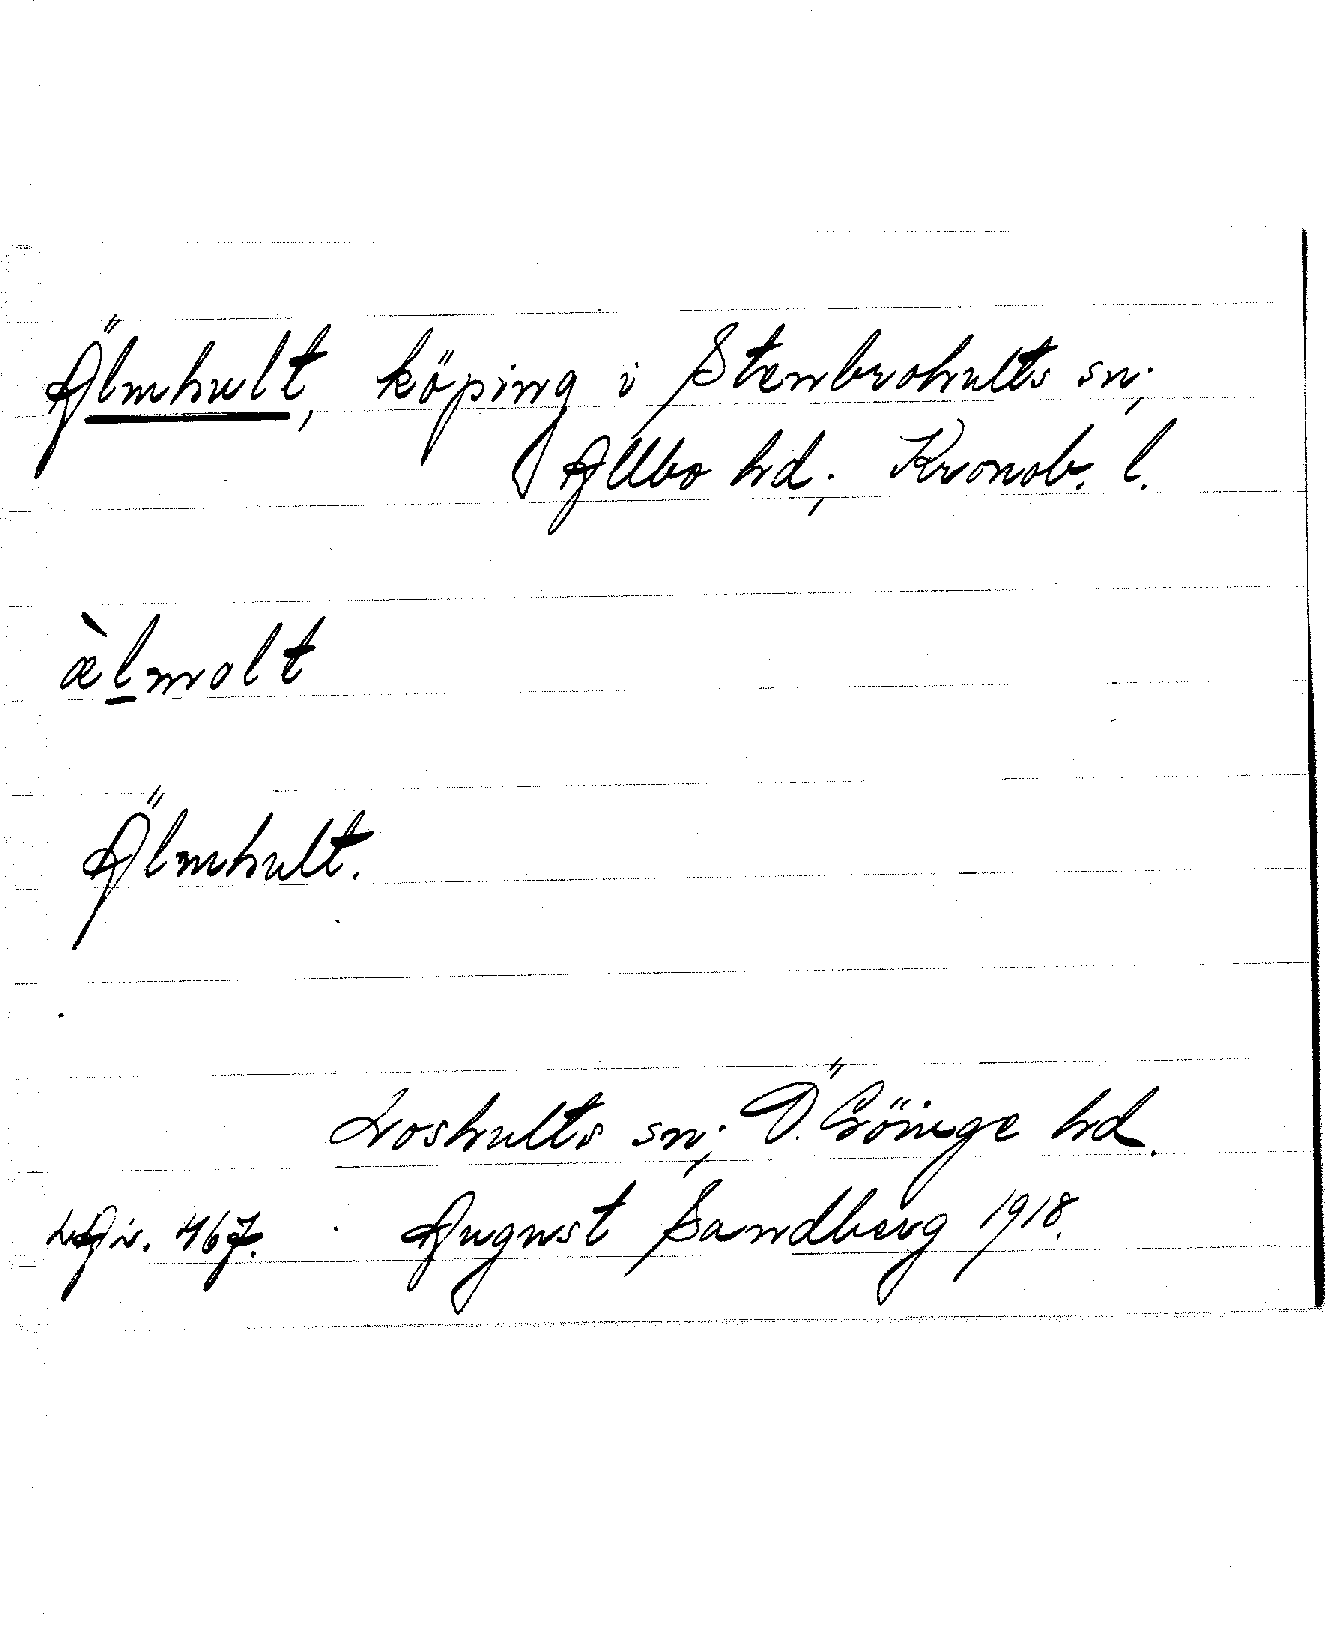 Älmhult, köping i Stenbrohults sn;
Allbo hd; Kronob. l.
æ̀lmolt
Älmhult.
Loshults sn; Ö. Göinge hd.
August Sandberg 1918.